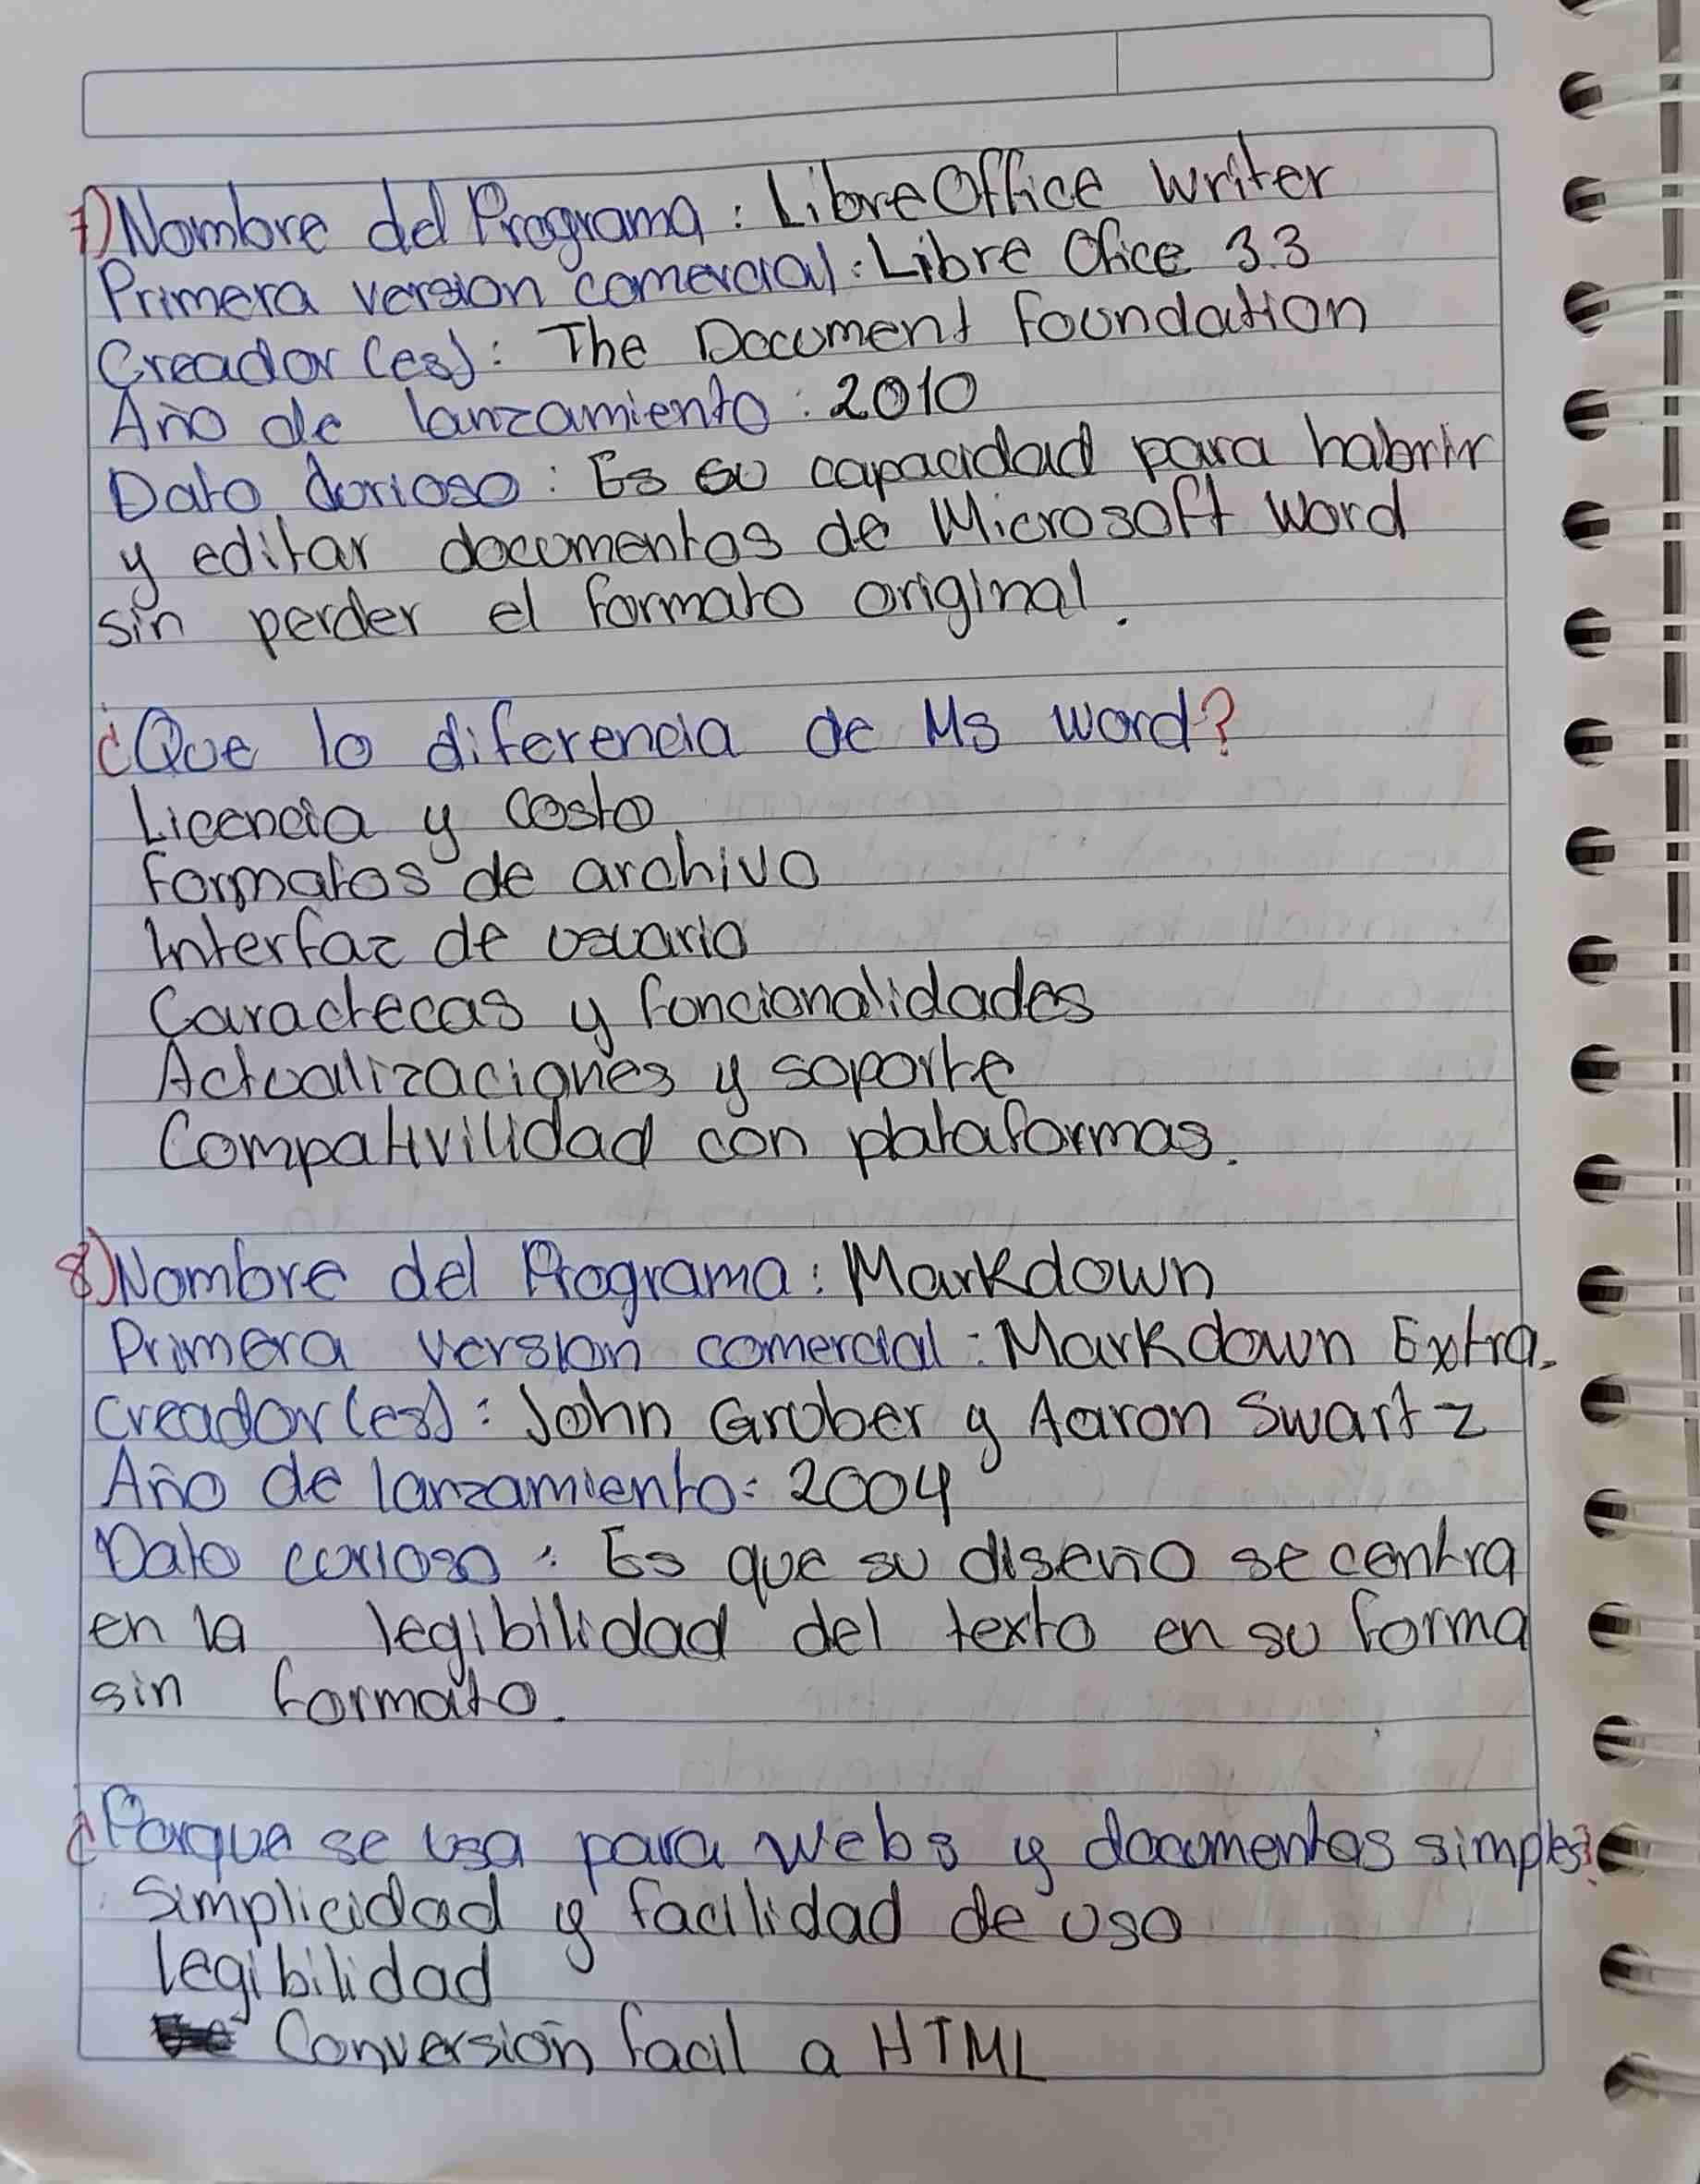 7) Nombre del Programa: LibreOffice Writer
Primera version comercial: Libre Ofice 3.3
Creador (es): The Document Foundation
Año de lanzamiento: 2010
Dato Curioso: Es su capacidad para habrir
y editar documentos de Microsoft Word
sin perder el formato original.
¿Que lo diferencia de Ms Word?
Licencia y costo
Formatos de archivo
Interfaz de usuario
Caractecas y funcionalidades
Actualizaciones y soporte
Compativilidad con plataformas.
8) Nombre del Programa: Markdown
Primera version comercial: Markdown Extra.
Creador (es): John Gruber y Aaron Swartz
Año de lanzamiento: 2004
Dato curioso: Es que su diseño se centra
en la legibilidad del texto en su forma
sin formato.
¿Porque se usa para webs y documentos simples?
Simplicidad y facilidad de uso
legibilidad
Conversión facil a HTML